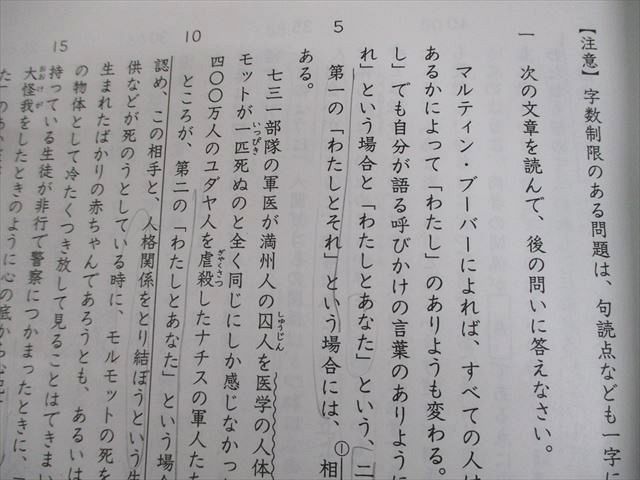 【注意】字数制限のある問題は、句読点なども一字に
一 次の文章を読んで、後の問いに答えなさい。
マルティン・ブーバーによれば、すべての人は
あるかによって「わたし」のありようも変わる。
し」でも自分が語る呼びかけの言葉のありように
れ」という場合と「わたしとあなた」という、二
5 第一の「わたしとそれ」という場合には、①相
ある。
七三一部隊の軍医が満州人の囚人を医学の人体
モットが一匹死ぬのと全く同じにしか感じなかっ
四〇〇万人のユダヤ人を虐殺したナチスの軍人た
10 ところが、第二の「わたしとあなた」という場合
認め、この相手と、人格関係をとり結ぼうという生
供などが死のうとしている時に、モルモットの死を
生まれたばかりの赤ちゃんであろうとも、あるいは
の物体として冷たくつき放して見ることはできまい
持っている生徒が非行で警察につかまったときに、
15 大怪我をしたときのように心の底から